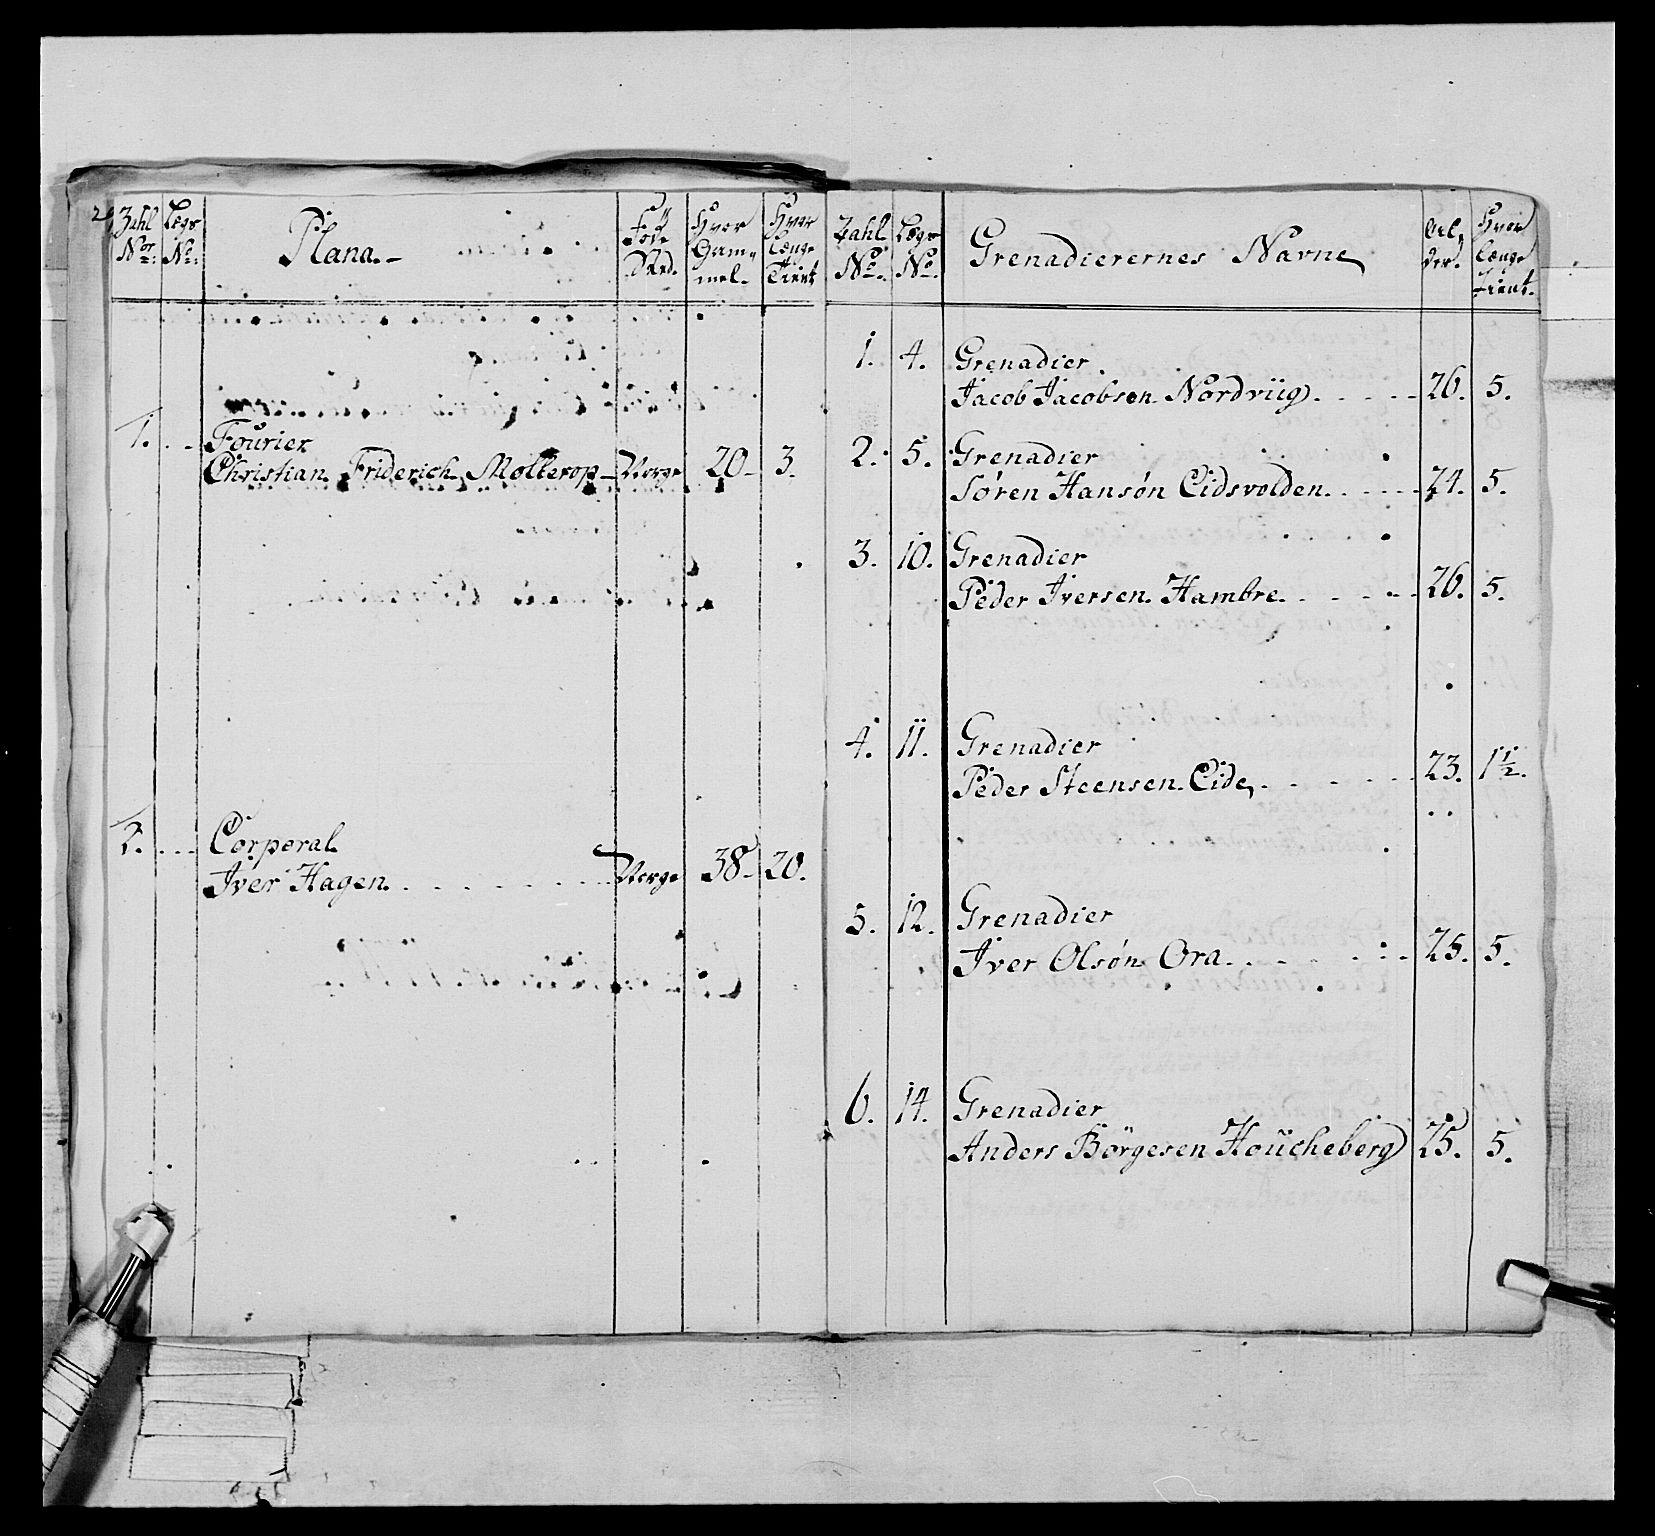 Zahl Nor. Lægs No. Plana. Føde Stæd. Hvor Gam- mel. Hvor længe Tient
1. Fourier
Christian Friderich Mollerop Norge 20 3.
2. Corporal
Iver Hagen Norge 38 20.
Zahl No. Lægs No. Grenadierernes Navne Al- der. Hvor længe tient.
1. 4. Grenadier
Jacob Jacobsen Nordviig 26. 5.
2. 5. Grenadier
Søren Hansøn Eidsvolden 24. 5.
3. 10. Grenadier
Peder Iversen Hambre 26. 5.
4. 11. Grenadier
Peder Steensen Eide 23. 1 1/2.
5. 12. Grenadier
Iver Olsøn Ora 25. 5.
6. 14. Grenadier
Anders Börgesen Houcheberg 25. 5.